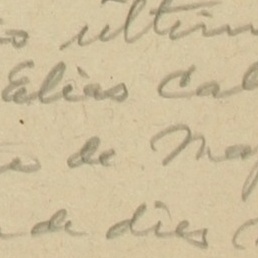 o últim
Elias Cal
de Ma
de dies